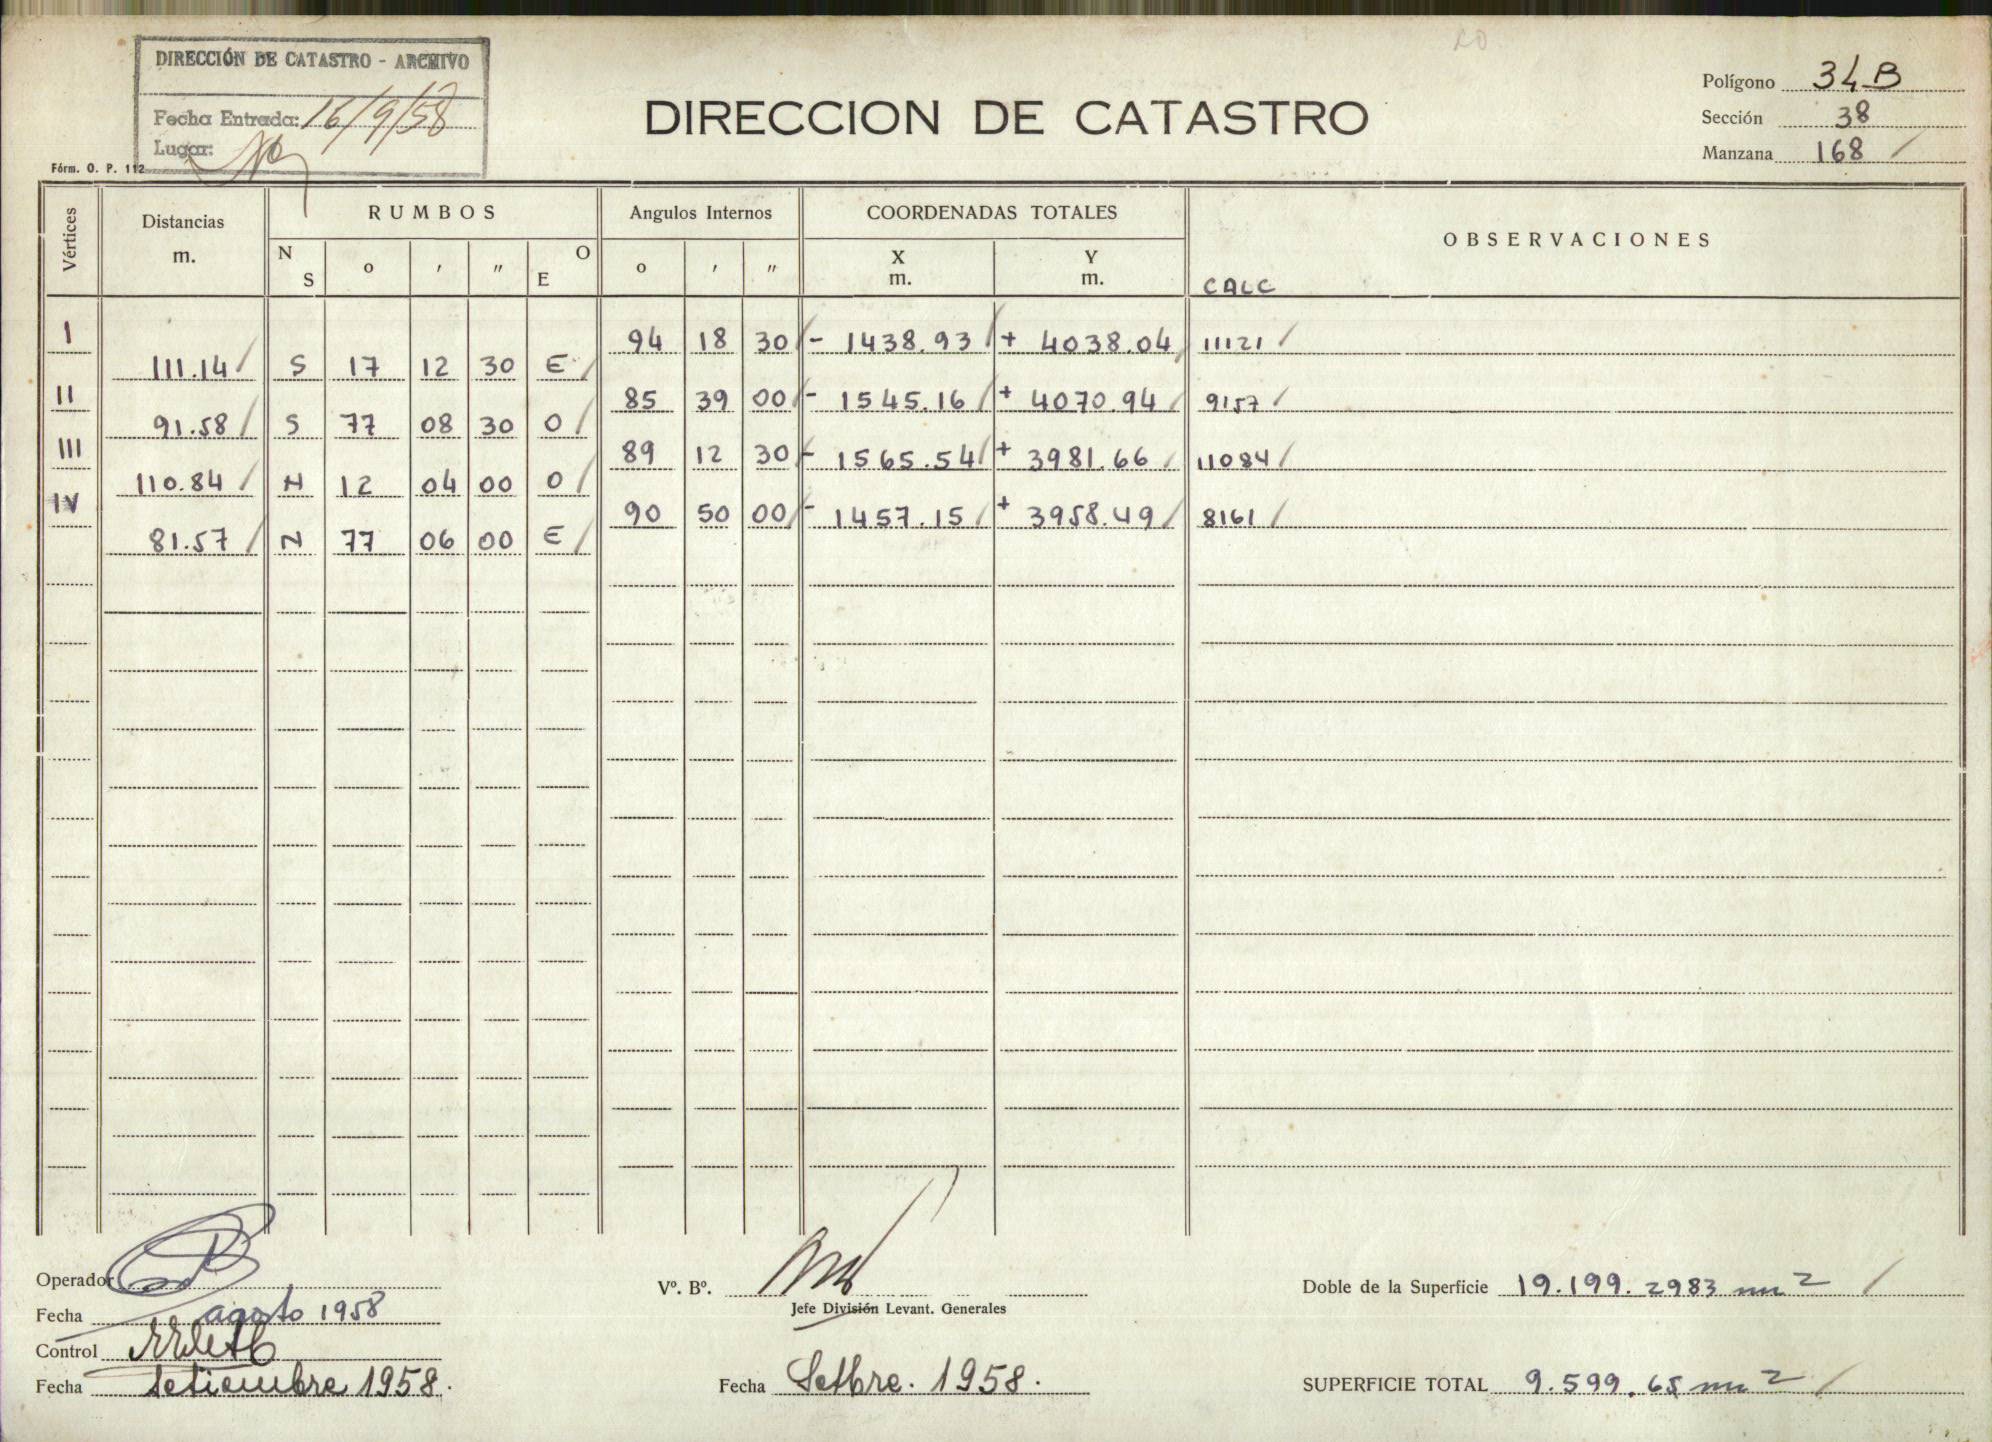 DIRECCIÓN DE CATASTRO - ARCHIVO
Fecha Entrada: 16/9/58
Lugar:
Fórm. O. P. 112
DIRECCION DE CATASTRO
Polígono 34B
Sección 38
Manzana 168 /
Vértices Distancias m. RUMBOS Angulos Internos COORDENADAS TOTALES OBSERVACIONES
N S o ' " O E o ' " X m. Y m. CALC
I 94 18 30 / - 1438.93 / + 4038.04 / 11121 /
111.14 / S 17 12 30 E /
II 85 39 00 / - 1545.16 / + 4070.94 / 9157 /
91.58 / S 77 08 30 O /
III 89 12 30 / - 1565.54 / + 3981.66 / 11084 /
110.84 / N 12 04 00 O /
IV 90 50 00 / - 1457.15 / + 3958.49 / 8161 /
81.57 / N 77 06 00 E /
Operador
Fecha agosto 1958
Control
Fecha Setiembre 1958.
Vº. Bº.
Jefe División Levant. Generales
Fecha Setbre. 1958.
Doble de la Superficie 19.199.2983 m2 /
SUPERFICIE TOTAL 9.599.65 m2 /